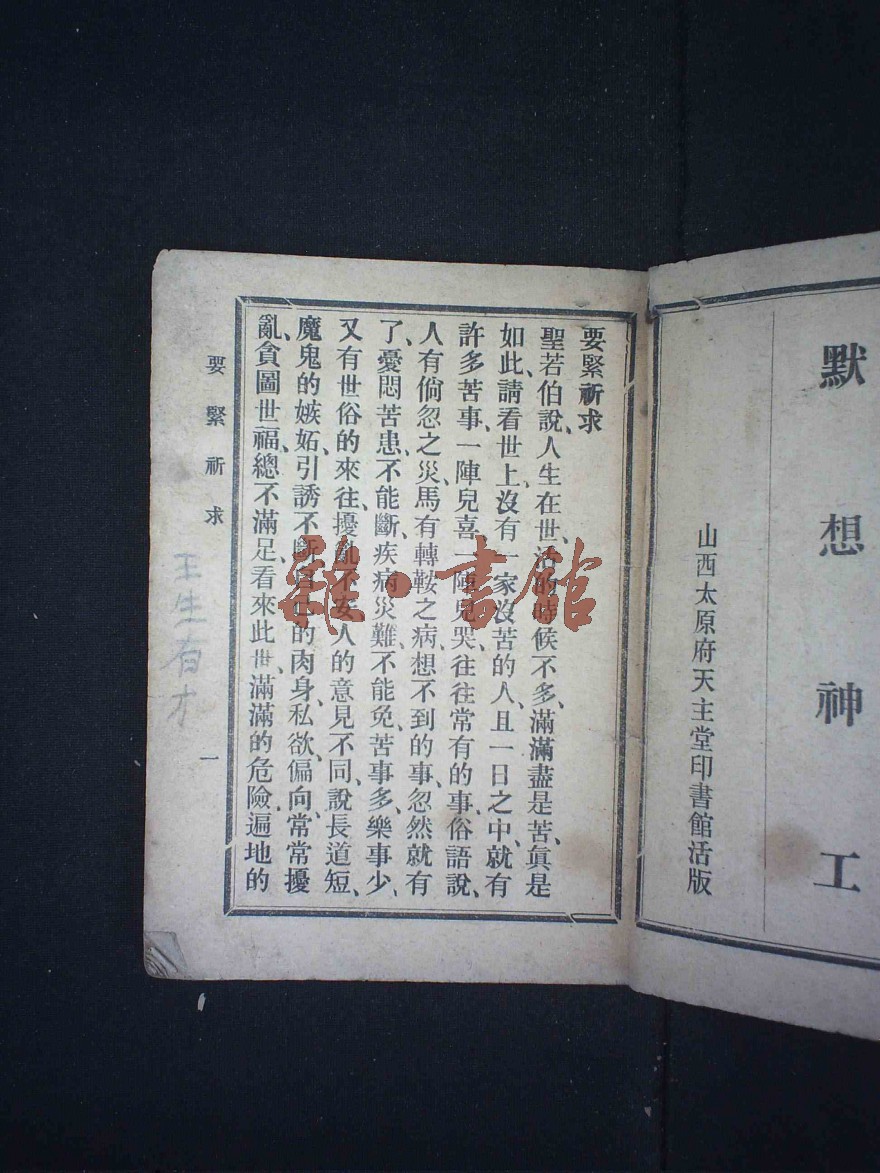 默想神工
山西太原府天主堂印書館活版
要緊祈求
聖若伯說、人生在世活的時候不多、滿滿盡是苦、眞是
如此、請看世上、沒有一家沒苦的人、且一日之中、就有
許多苦事、一陣兒喜、一陣兒哭、往往常有的事、俗語說、
人有倘忽之災、馬有轉鞍之病、想不到的事、忽然就有
了、憂悶苦患、不能斷、疾病災難、不能免、苦事多、樂事少、
又有世俗的來往、擾亂不安、人的意見不同、說長道短、
魔鬼的嫉妬、引誘不斷、自己的肉身、私欲、偏向、常常擾
亂、貪圖世福、總不滿足、看來此世、滿滿的危險、遍地的
要緊祈求
一
王生有才
雜·書館